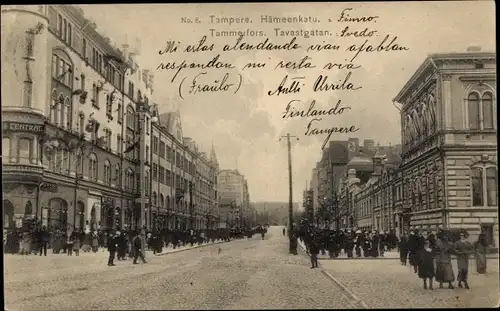 No. 6. Tampere. Hämeenkatu. Finno.
Tammerfors. Tavastgatan. Svedo.
Mi estas atendande vian afablan
respondon mi resta via
(Fraŭlo) Antti Uurila
Finlando
Tampere
CENTRAL